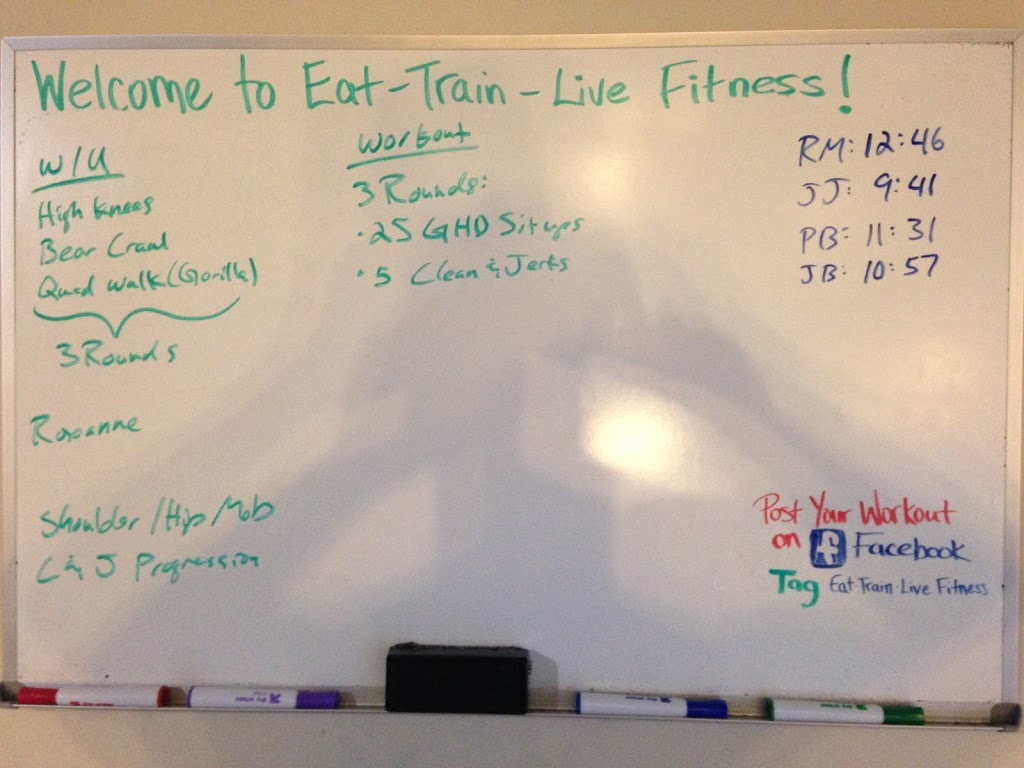 Welcome to Eat-Train-Live Fitness!
W/U
High Knees
Bear Crawl
Quad Walk (Gorilla)
3 Rounds
Roxanne
Shoulder/Hip/Mob
C & J Progression
Workout
3 Rounds:
·25 GHD Situps
·5 Clean & Jerks
RM: 12:46
JJ: 9:41
PB: 11:31
JB: 10:57
Post Your Workout
on f Facebook
Tag Eat·Train·Live Fitness